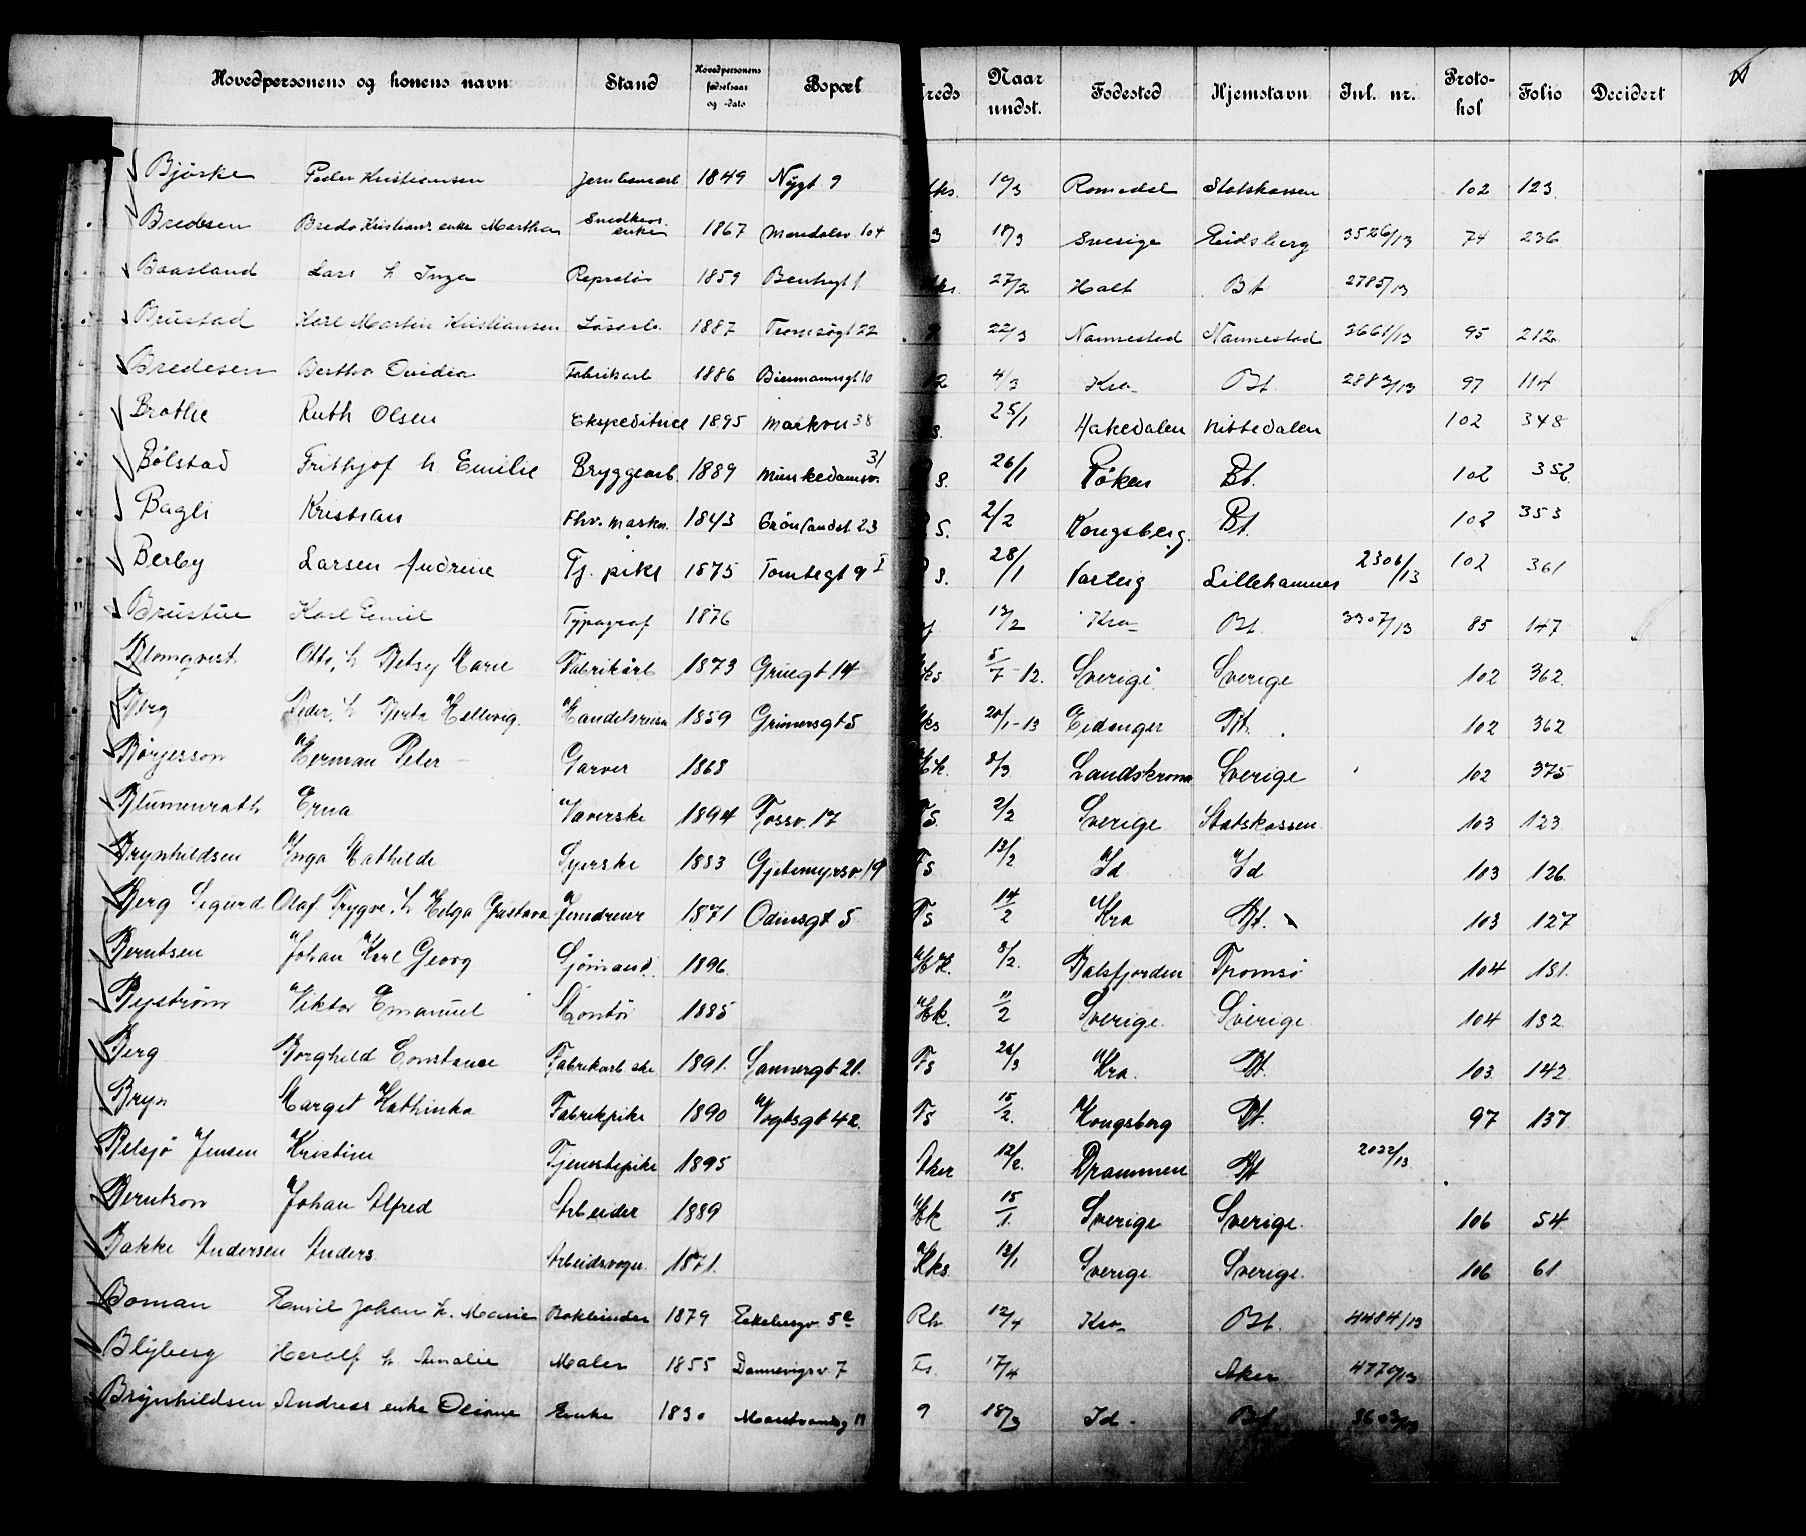 Hovedpersonens og konens navn Stand Hovedpersonens fødselsaar og -dato Bopæl Kreds Naar undst. Fødested Hjemstavn Inl. nr. Protokol Folio Decidert
Bjørke Peder Kristiansen 1849 Nygt 9 ks. Romedal Statskassen 102 123
Bredesen Bredo Kristians. enke Martha Snedkers enke 1867 Maridalsv. 104 3 18/3 Sverige Eidsberg 3526/13 74 236
Baasland Lars h Inga Repslår 1859 ks. 27/2 Holt Bt 2785/13
Brustad Karl Martin Kristiansen Løsarb. 1887 Tromsøgt 22 22/3 Nannestad Nannestad 3661/13 95 212
Bredesen Bertha Ovidia Fabrikarb 1886 Biermannsgt 10 12 4/3 Kra Bt. 2883/13 97 114
Brothe Ruth Olsen Ekspeditrice 1895 Markvn 38 s. 25/1 Hakedalen Nittedalen 102 348
Bølstad Frithjof h Emilie Bryggearb. 1889 Munkedamsv. 31 s. 26/1 Røken Bt. 102 352
Bagli Kristian Fhv. maskn. 1843 Grønlandst. 23 S. 2/2 Kongsberg. Bt. 102 353
Berby Larsen Andrine Tj. pike 1875 Tomtegt 9 I s. 28/1 Varteig Lillehammer 2306/13 102 361
Brustue Karl Emil Typograf 1876 13/2 Kra Bt. 3307/13 85 147
Blomqvist Otto, h Betsy Marie Fabrikarb 1873 Gruegt 14 ks 5/7-12. Sverige Sverige 102 362
Berg Peder, h Berta Hellevig. Handelsreisn 1859 Grimersgt 5 ks 20/1-13 Eidanger Bt. 102 362
Børjesson Herman Peter Garver 1868 Hk. 8/3 Landskrona Sverige 102 375
Blumenrath Erna Væverske 1894 Fossv. 17 Fs. 2/2 Sverige Statskassen 103 123
Brynhildsen Inga Mathilde Syerske 1883 Gjetemyrsv. 19 Fs 13/2 Id Id 103 126
Berg Sigurd Olaf Trygve, h Helga Gustava Jerndreier 1871 Odinsgt 5 Fs 14/2 Kra Bt. 103 127
Berntsen Johan Karl Georg Sjømand. 1896 Hk. 8/2. Balsfjorden Tromsø 104 131
Byström Viktor Emanuel Kontör 1885 Hk. 11/2 Sverige Sverige 104 132
Berg Borghild Constance Fabrikarb ske 1891. Sannergt 21. Fs 26/3 Kra. Bt. 103 142
Bryn Marget Kathinka Fabrikpike 1890 Vogtsgt 42. Fs 15/2. Kongsberg Bt. 97 137
Belsjø Jensen Kristine Tjenestepike 1895 Aker 12/2. Drammen Bt 2022/13
Berntson Johan Alfred Arbeider 1889 Hk 15/1. Sverige Sverige. 106 54
Bakke Andersen Anders Arbeidsvogn. 1871. Kks 13/1 Sverige. Sverige. 106 61
Boman Emil Johan h. Marie Bokbinder 1879 Ekebergv. 5c Rh 12/4 Kra Bt. 4484/13
Blyberg Herolf h Amalie Maler 1855 Dannevigsv. 7 Fs. 17/4 Aker 4770/13
Brynhildsen Andreas enke Oliane Enke 1830 9 18/3 Id. Bt. 3603/13